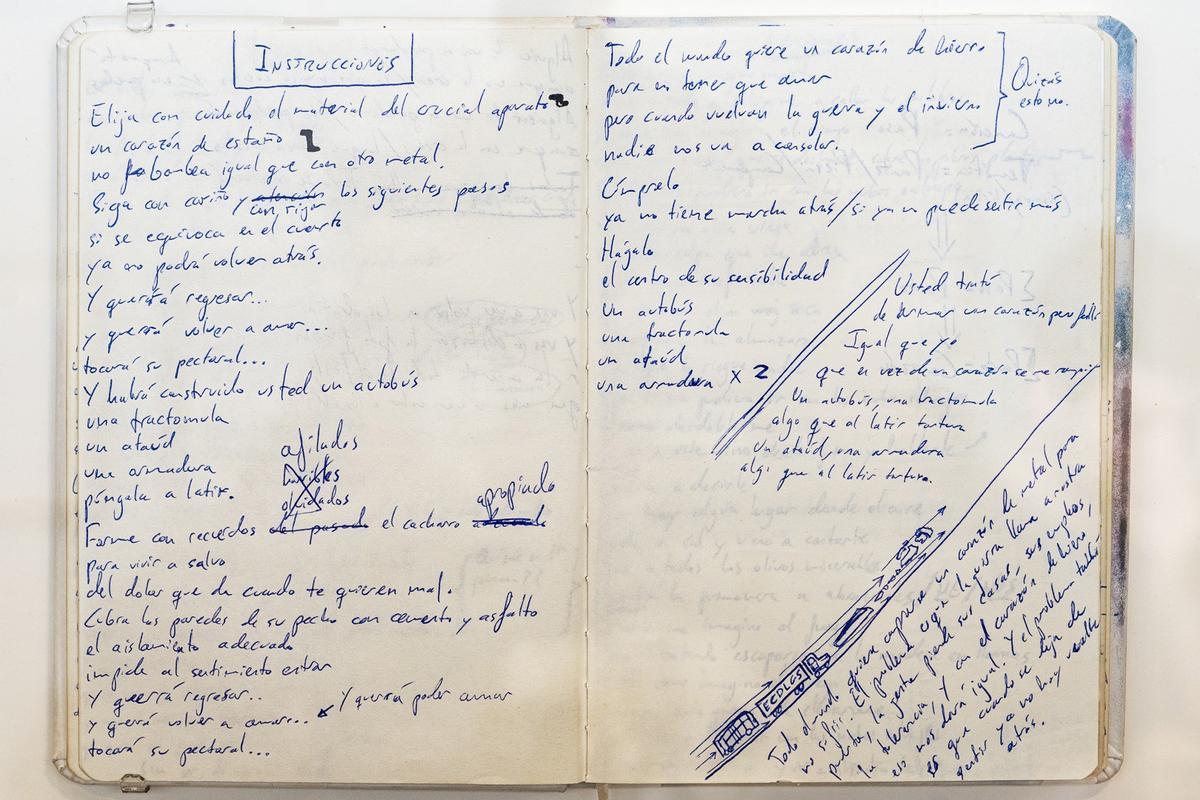 INSTRUCCIONES
Elija con cuidado el material del crucial aparato
un corazón de estaño
no bombea igual que con otro metal.
Siga con cariño y atención los siguientes pasos
con rigor
si se equivoca en el cuarto
ya no podrá volver atrás.
Y querrá regresar...
y querrá volver a amar...
tocará su pectoral...
Y habrá construido usted un autobús
una tractomula
un ataúd
una armadura
póngala a latir.
afilados
horribles
olvidados
apropiado
Forme con recuerdos del pasado el cacharro adecuado
para vivir a salvo
del dolor que da cuando te quieren mal.
Cubra las paredes de su pecho con cemento y asfalto
el aislamiento adecuado
impide al sentimiento entrar
Y querrá regresar..
y querrá volver a amar...
Y querrá poder amar
tocará su pectoral...
Todo el mundo quiere un corazón de hierro
para no tener que amar
pero cuando vuelvan la guerra y el invierno
nadie nos va a consolar.
Quizás
esto no.
Cómprelo
ya no tiene marcha atrás / si ya no puede sentir más
Hágalo
el centro de su sensibilidad
Un autobús
una tractomula
un ataúd
una armadura x 2
Usted trató
de armar un corazón perfecto
Igual que yo
que en vez de un corazón se me rompió
Un autobús, una tractomula
algo que al latir tortura
Un ataúd, una armadura
algo que al latir tortura.
Todo el mundo quiere comprarse un corazón de metal para
no sufrir. El problema es que la guerra llama a nuestra
puerta, la gente pierde sus casas, sus empleos,
la tolerancia, y con el corazón de hierro
eso nos dará igual. Y el problema también
es que cuando se deja de
sentir ya no hay vuelta
atrás.